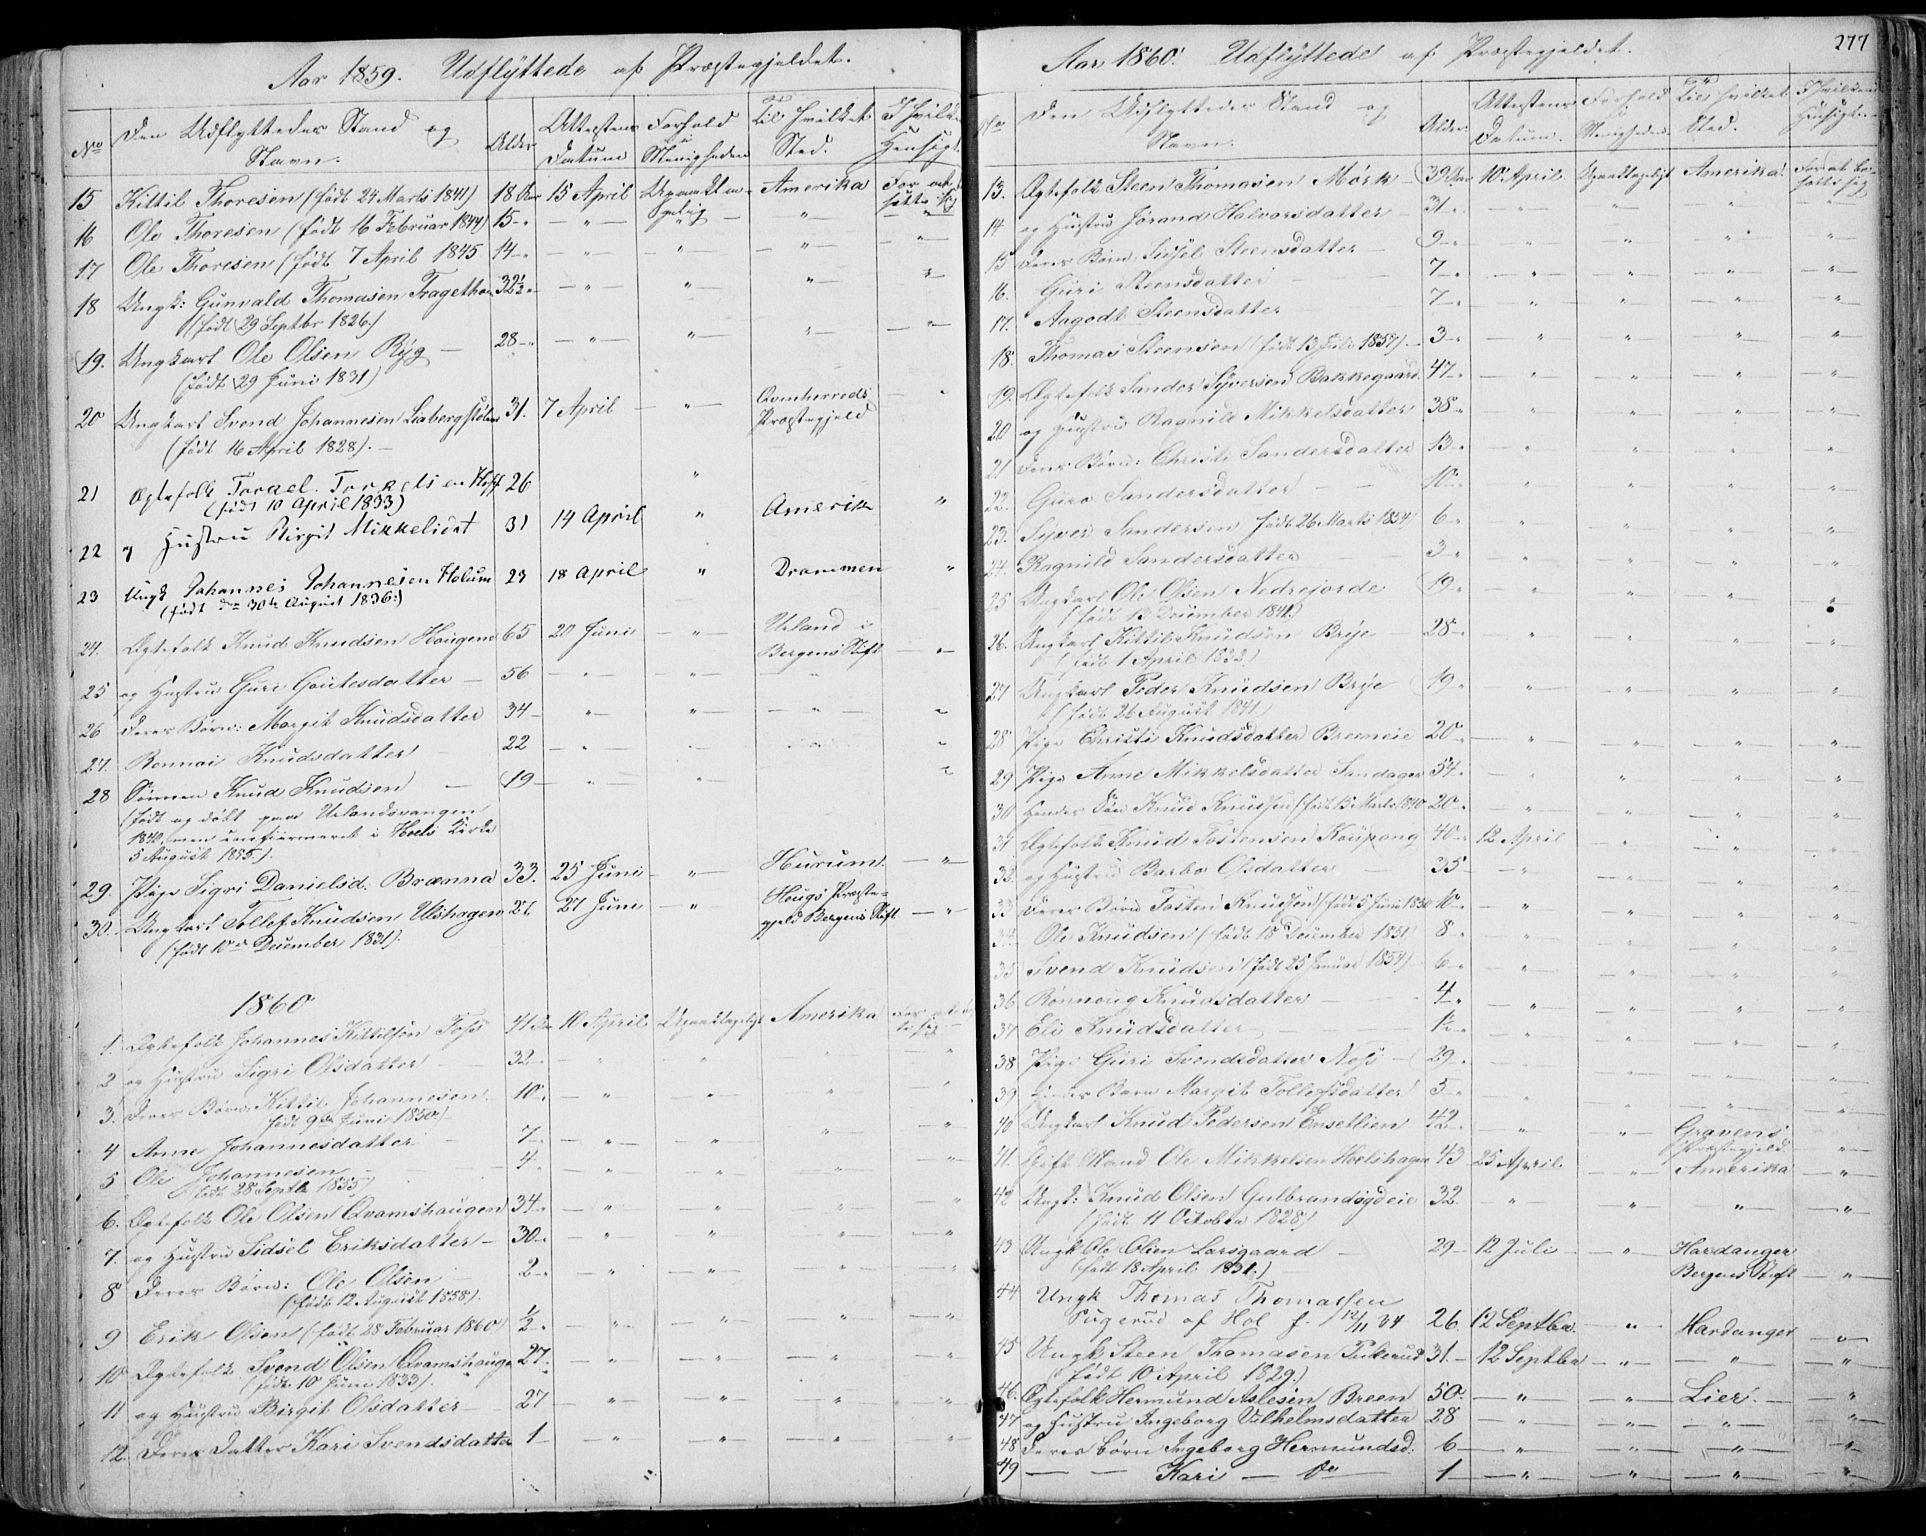 Aar 1859. Udflyttede af Præstegjeldet.
No Den Udflyttedes Stand og Navn. Alder Attestens Datum Forhold i Menigheden Til hvilket Sted. I hvilken Hensigt.
15 Kittil Thoresen (født 24 Marts 1841) 18 Aar 15 April Upaaklageligt Amerika For at sætte sig
16 Ole Thoresen (født 16 Februar 1844) 15 " " " "
17 Ole Thoresen (født 7 April 1845 14 " " " "
18 Ungk: Gunvald Thomasen Tragethon 32½ " " " "
(født 29 Septbr 1826.)
19. Ungkarl Ole Olsen Ryg 28 " " " "
(født 29 Juni 1831)
20 Ungkarl Svend Johannesen Laabergstølen 31. 7 April " Qvinherreds Præstegjeld "
(født 16 April 1828).
21 Ægtefolk Torgel Torgelsen Hoff 26 "
(født 10 April 1833)
22 og Hustru Birgit Mikkelsdat 31 14 April " Amerik "
23 Ungk Johannes Johannesen Holum 23 18 April " Drammen "
(født den 30te August 1836.)
24. Ægtefolk Knud Knudsen Haugene 65 20 Juni " Urland i Bergens Stift "
25 og Hustru Guri Goutesdatter 56 " " " "
26 Deres Børn: Margit Knudsdatter 34 " " " "
27. Ronnai Knudsdatter 22 " " "
28 Sønnen Knud Knudsen 19 " " "
(født og døbt paa Urlandsvangen
1840, men confirmeret i Hoels Kirke
5 August 1855.).
29. Pige Sigri Danielsd. Brænna 33. 25 Juni " Hurum. "
30. Ungkarl Tollef Knudsen Ulshagen 27 27 Juni " Hougs Præstegjeld Bergens Stift "
(født 10de December 1831).
1860
1. Ægtefolk Johannes Kittilsøn Foss 41 Aar 10 April Upaaklageligt Amerika For at sætte sig
2 og Hustru Sigri Olsdatter 32 " " " "
3. Deres Børn: Kittil Johannesen 10 " " " "
født 9de Juni 1850
4 Anne Johannesdatter 7 " " " "
5 Ole Johannesen 4 " " " "
født 28 Septb 1855)
6. Ægtefolk Ole Olsen Qvamshaugen 34 " " " "
7. og Hustru Sidsel Eriksdatter 30 " " " "
8 Deres Børn: Ole Olsen 2 " " " "
(født 12 August 1858).
9 Erik Olsen (født 28 Februar 1860) ½ " " " "
10 Ægtefolk Svend Olsen Qvamshauge 27 " " " "
(født 10 Juni 1833).
11 og Hustru Birgit Olsdatter 27 " " " "
12. Deres Datter Kari Svendsdatter 1 " " " "
Aar 1860. Udflyttede af Præstegjeldet. 277
No Den Udflyttedes Stand og Navn. Alder. Attestens Datum. Forhold i Menigheden Til hvilket Sted. I hvilken Hensigt
13. Ægtefolk Steen Thomasen Mørk 39 Aar 10 April Upaaklageligt Amerika For at bosætte sig
14 og Hustru Jørand Halvorsdatter 31 " " " "
15 Deres Børn: Sidsel Steensdatter 9 " " " "
16. Guri Steensdatter 7 " " " "
17. Aagodt Steensdatter 7 " " " "
18. Thomas Steensen (født 13 Juli 1857) 3 " " " "
19. Ægtefolk Sander Syversen Bakkegaard 47 " " " "
20 og Hustru Ragnild Mikkelsdatter 38 " " " "
21 Deres Børn: Christi Sandersdatter 13 " " " "
22. Guro Sandersdatter 10 " " " "
23. Syver Sandersen født 26 Marts 1854) 6 " " " "
24. Ragnild Sandersdatter 3 " " " "
25 Ungkarl Ole Olsen Nedrejorde 19 " " " "
(født 13 December 1841)
26. Ungkarl Kittil Knudsen Brye 28 " " " "
(født 1 April 1832)
27 Ungkarl Peder Knudsen Brye 19 " " " "
(født 26 August 1841)
28 Pige Christi Knudsdatter Bremeie 20 " " " "
29 Pige Anne Mikkelsdatter Sandager 54 " " " "
30 Hendes Søn Knud Knudsen (født 15 Marts 1840 20 " " " "
31 Ægtefolk Knud Tostensen Koupang 40 12 April " " "
32. og Hustru Barbo Olsdatter 35 " " " "
33 Deres Børn Tosten Knudsen (født 5 Juni 1850 10 " " " "
34. Ole Knudsen (født 18 December 1851) 8 " " " "
35 Svend Knudsen (født 25 Januar 1854) 6 " " " "
36 Rønnoug Knudsdatter 4 " " " "
37 Eli Knudsdatter ½ " " " "
38 Pige Guri Svendsdatter Noss 29 " " " "
39 Hendes Barn Margit Tollefsdatter 3 " " " "
40 Ungkarl Knud Pedersen Ensetlien 42 " " Gravens Præstegjeld "
41. Gift Mand Ole Mikkelsen Hoelshagen 43 25 April " Amerika "
42 Ungk: Knud Olsen Gulbrandsgdeie 32. " " " "
(født 11 October 1828)
43 Ungk Ole Olsen Larsgaard 29 12 Juli " Hardanger Bergens Stift "
(født 18 April 1831.)
44 Ungk Thomas Thomassen
Sugerud af Hol f. 12/11 34 26. 12 Septber. " Hardanger "
45 Ungk Steen Thomasen Sukerud 31. 12 Septber " " "
(født 10 April 1829.)
46. Ægtefolk Hermund Aslesen Breen 50. " " Lier. "
47 og Hustru Ingeborg Vilhelmsdatter 28 " " " "
48 Deres børn Ingeborg Hermundsd. 6 " " " "
49 Kari do 1 " " " "